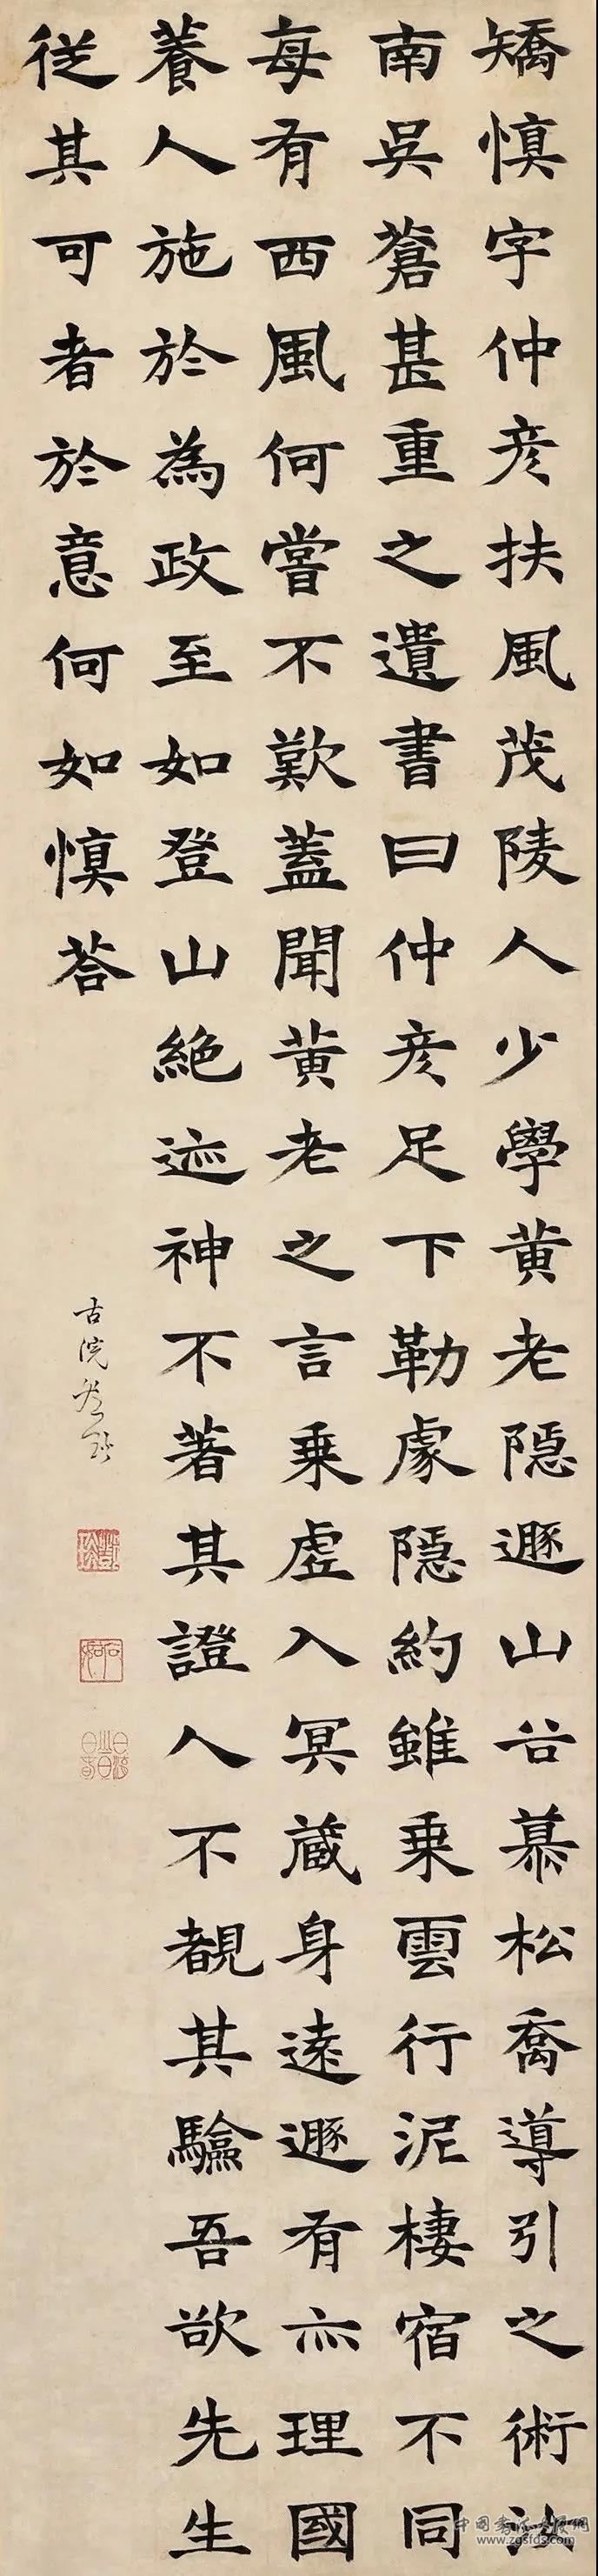 矯慎字仲彦扶風茂陵人少學黄老隱遯山谷慕松喬導引之術汝
南吳蒼甚重之遺書曰仲彦足下勤處隱約雖乗雲行泥棲宿不同
每有西風何嘗不歎蓋聞黄老之言乗虛入冥藏身遠遯有亦理國
養人施於為政至如登山絶迹神不著其證人不覩其驗吾欲先生
從其可者於意何如慎荅
古浣鄧琰
www.zgsfds.com